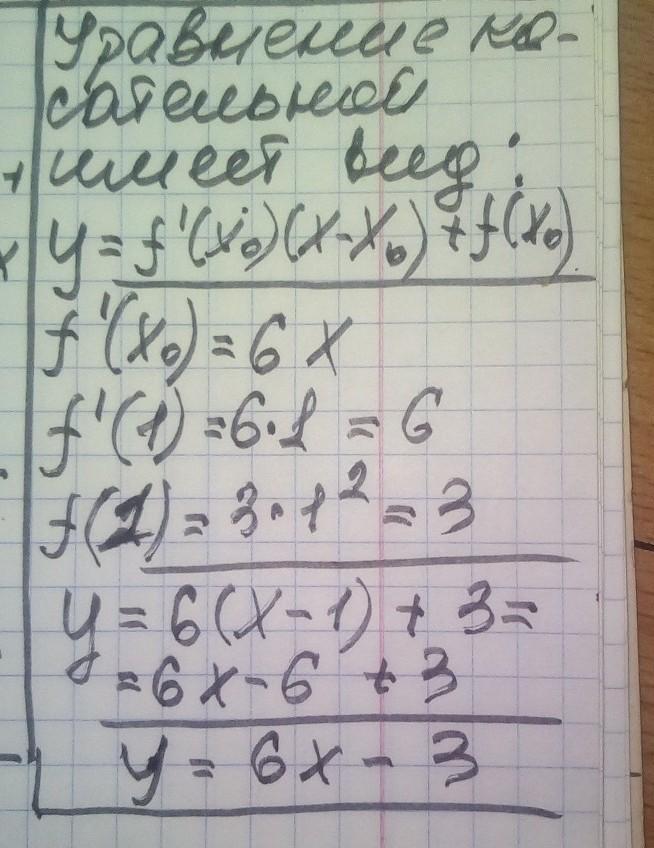 Уравнение ка-
сательной
имеет вид:
y = f'(x₀)(x-x₀) + f(x₀)
f'(x₀) = 6x
f'(1) = 6·1 = 6
f(1) = 3·1² = 3
y = 6(x-1) + 3 =
= 6x - 6 + 3
y = 6x - 3